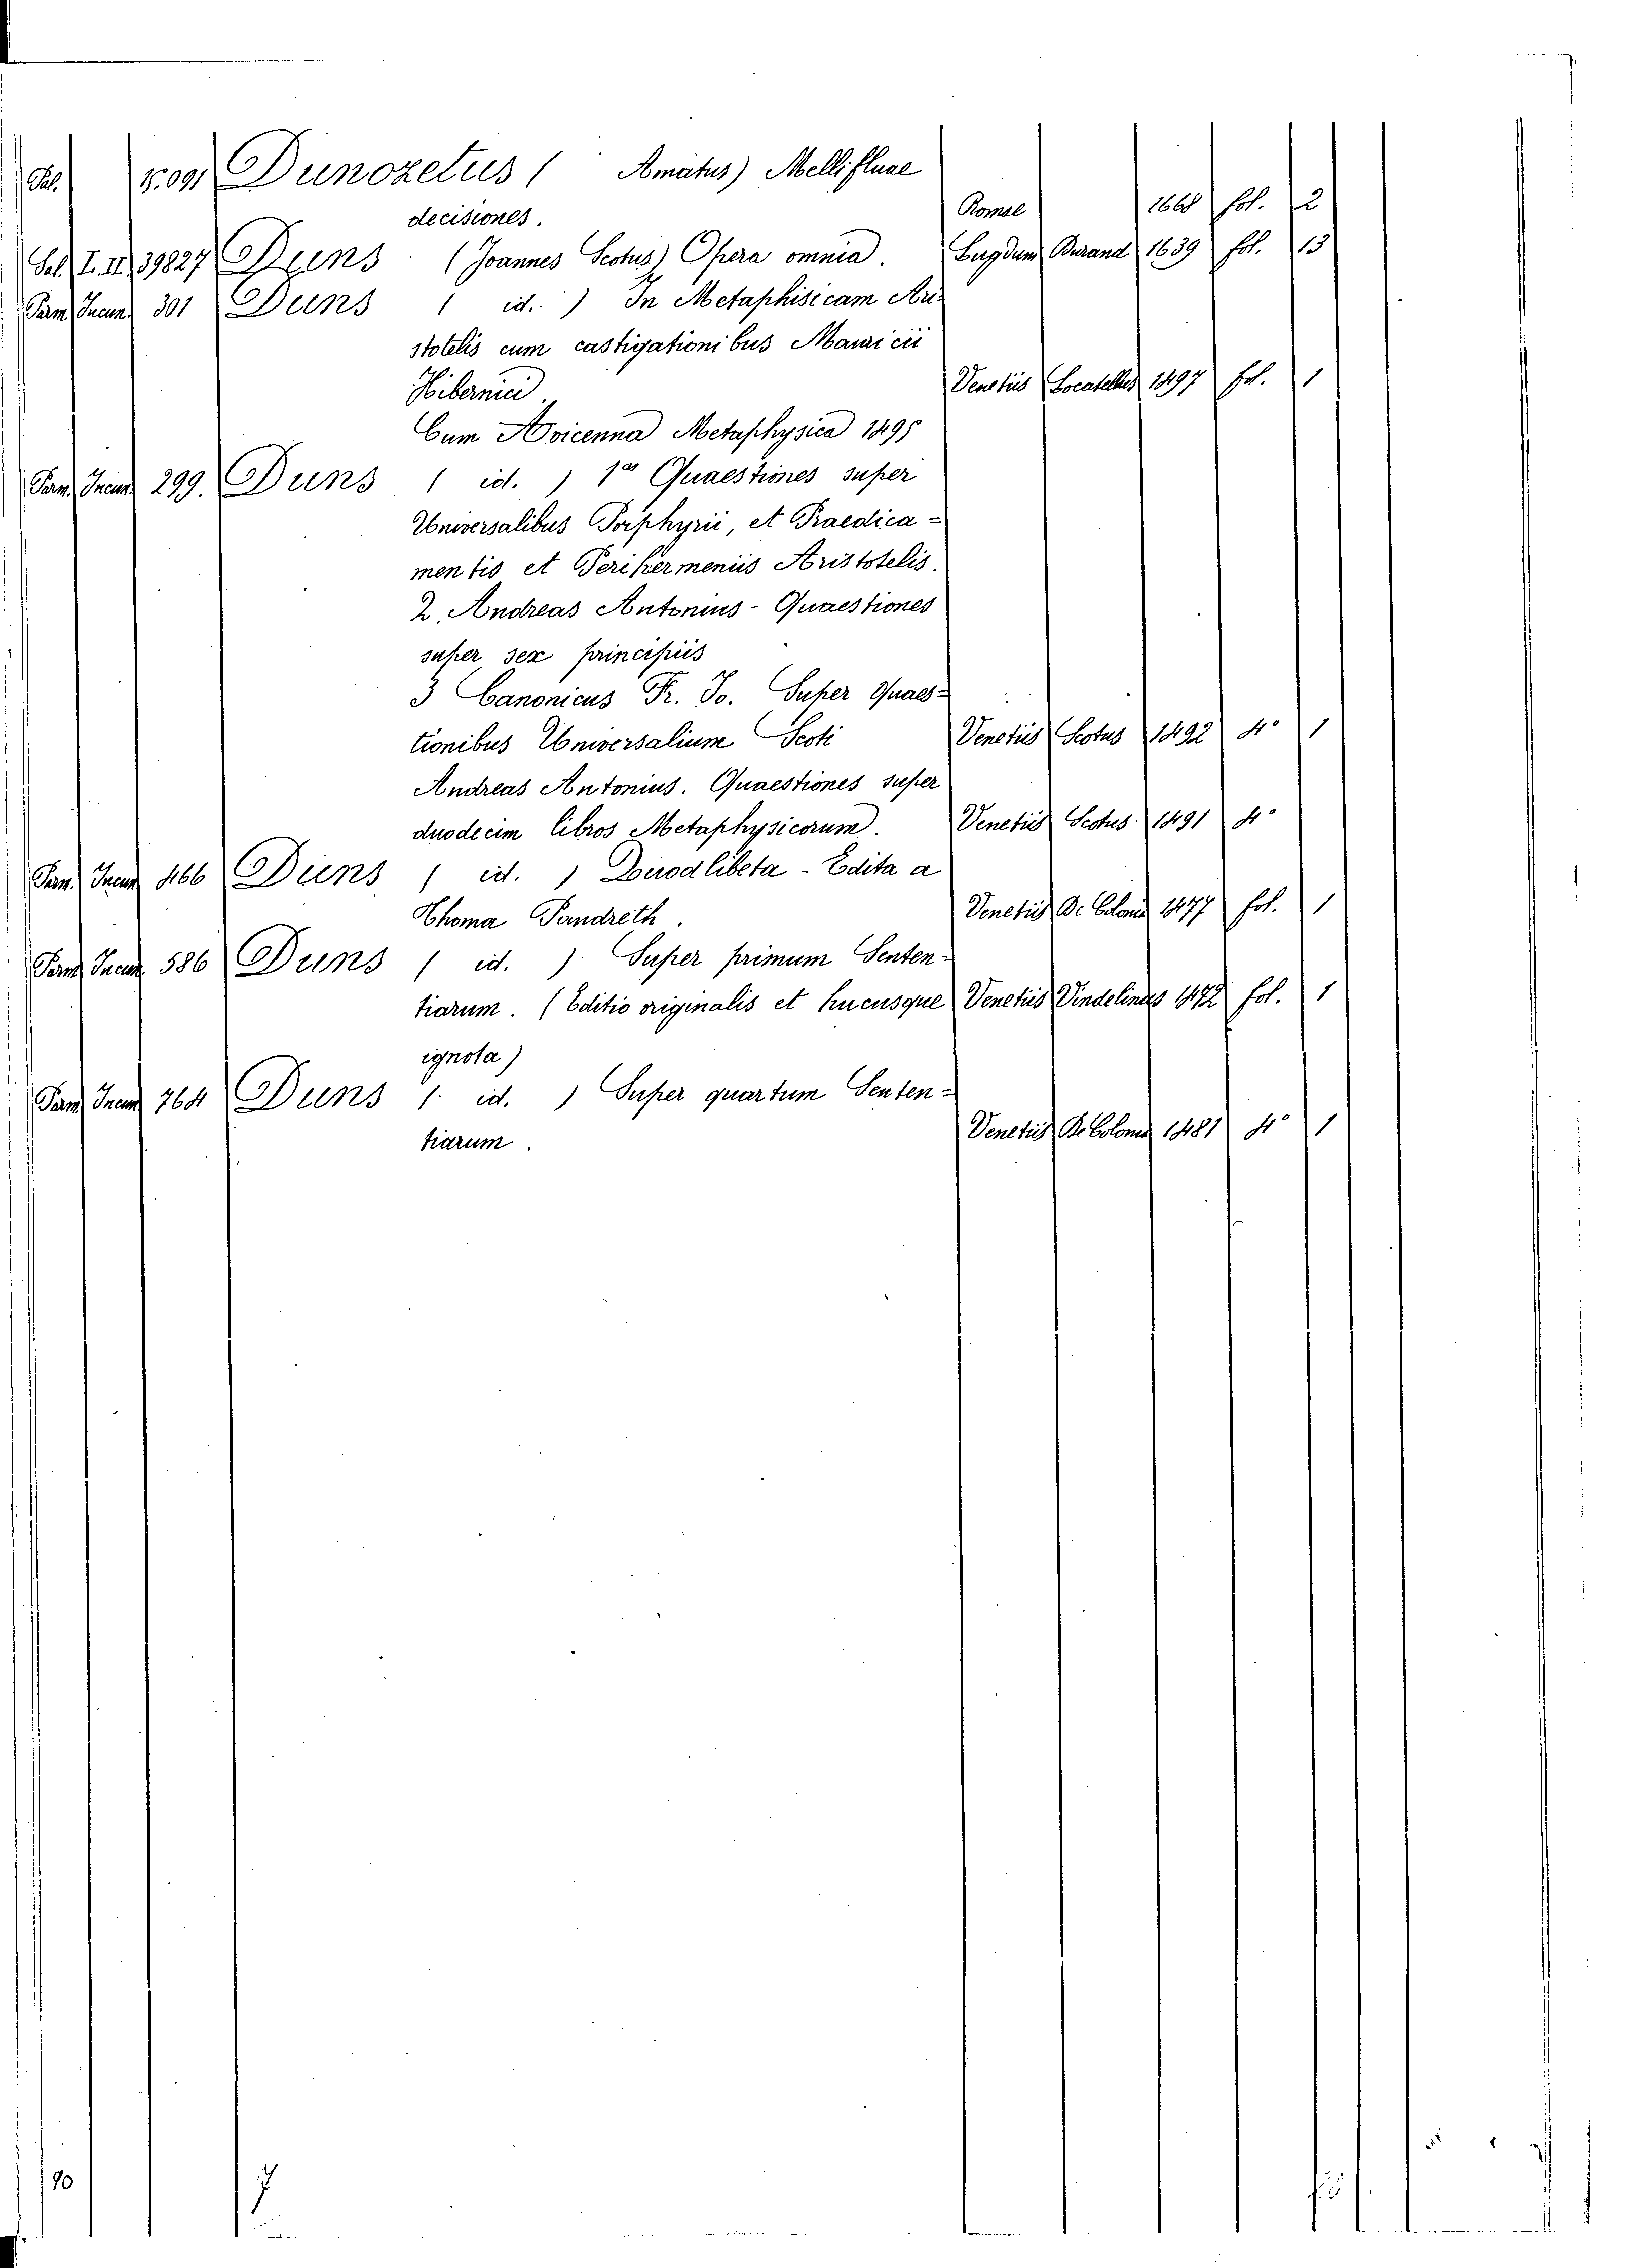 Pal. 15.091 Dunozetus ( Amatus) Mellifluae
decisiones. Romae 1668 fol. 2
Sal. I. II. 39827 Duns (Joannes Scotus) Opera omnia. Lugduni Durand 1639 fol. 13
Parm. Incun. 301 Duns ( id. ) In Metaphisicam Ari-
stotelis cum castigationibus Mauricii
Hibernici. Venetiis Locatellus 1497 fol. 1
Cum Avicenna Metaphysica 1495
Parm. Incun. 299. Duns ( id. ) 1º Quaestiones super
Universalibus Porphyrii, et Praedica=
mentis et Perihermeniis Aristotelis.
2. Andreas Antonius - Quaestiones
super sex principiis
3 Canonicus Fr. Jo. Super Quaes=
tionibus Universalium Scoti Venetiis Scotus 1492 4º 1
Andreas Antonius. Quaestiones super
duodecim libros Metaphysicorum. Venetiis Scotus 1491 4º
Parm. Incun. 466 Duns ( id. ) Quodlibeta - Edita a
Thoma Pandreth. Venetiis De Colonia 1477 fol. 1
Parm. Incun. 586 Duns ( id. ) Super primum Senten-
tiarum. (Editio originalis et hucusque Venetiis Vindelinus 1472 fol. 1
ignota)
Parm. Incun. 764 Duns ( id. ) Super quartum Senten=
tiarum. Venetiis De Colonia 1481 4º 1
90 7